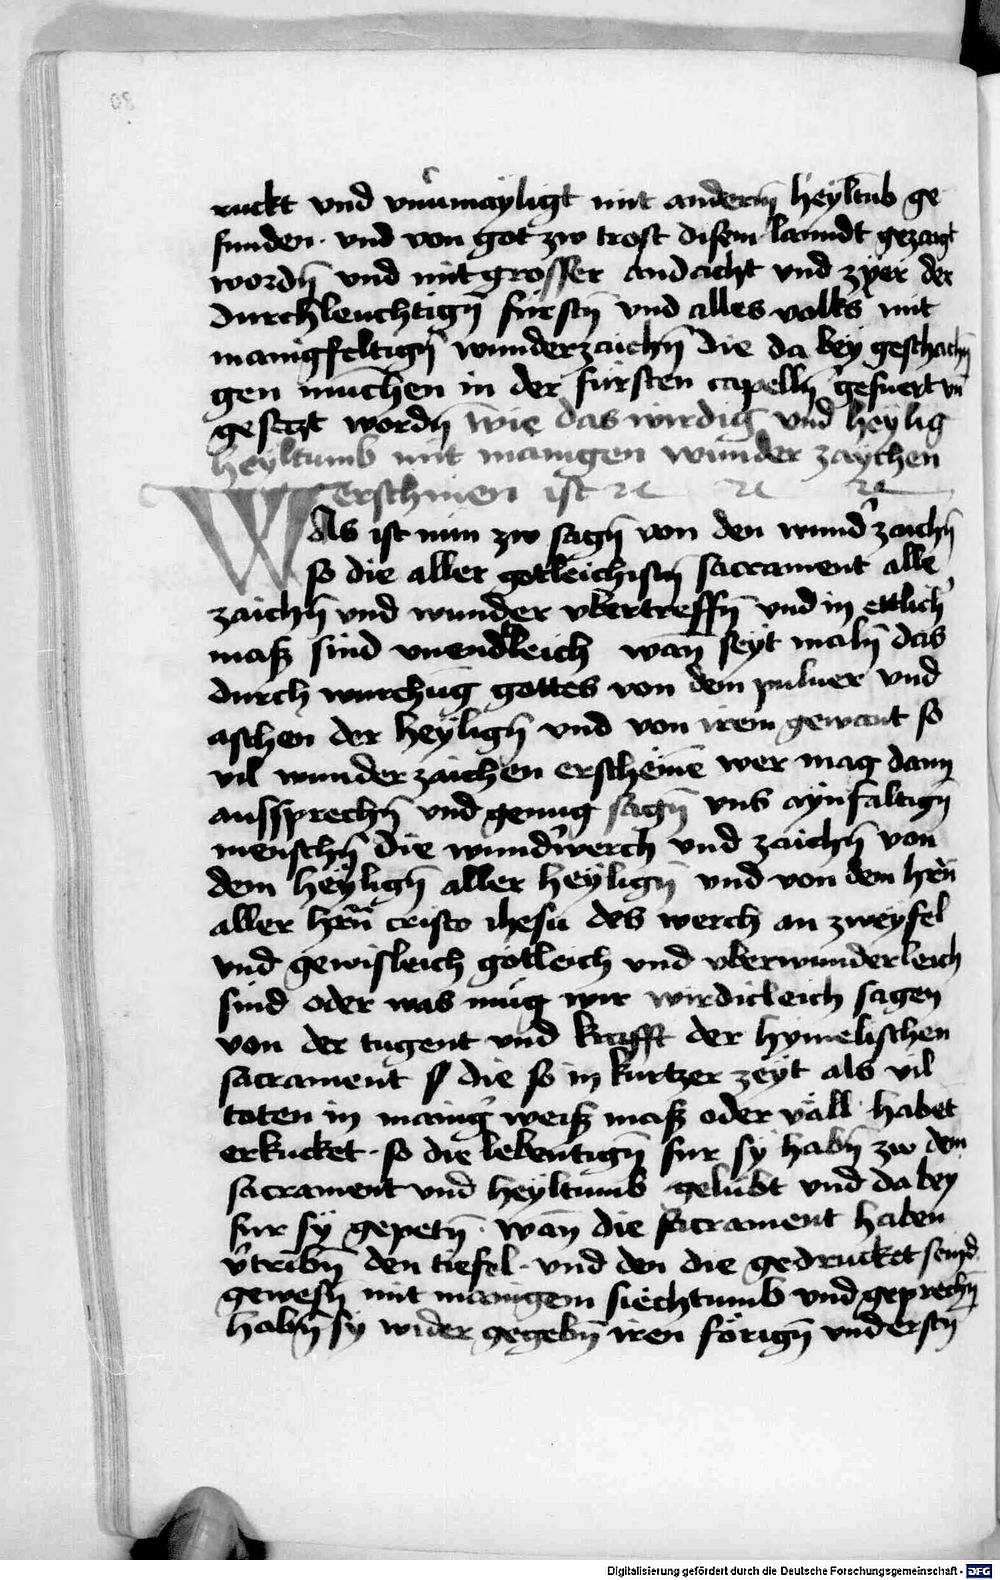 ruckt vnd vnuermayligt mit andern̄ heyltūb ge
funden · vnd von got zw trost disem lanndt gezaigt
wordn̄ vnd mit grosser andacht vnd zyer der
durchleuchtign̄ fürstn̄ vnd alles volks mit
manigfeltign̄ wunderzaichn̄ die da bey geschachn̄
gen munchen in der fürsten capelln̄ gefuert vn̄
gesetzt wordn̄ wie das wirdig vnd heylig
heyltumb mit manigen wunder zaychen
erschinen ist ꝛc ꝛc ꝛc
Was ist nun zw sagn̄ von den wund' zaichn̄
so die aller gotleichistn̄ sacrament alle
zaichn̄ vnd wunder vbertreffn̄ vnd in ettlich'
maß sind vnendleich wan̄ seyt maln̄ das
durch wurchūg gottes von dem puluer vnd
aschen der heylign̄ vnd von irem gewant so
vil wunder zaichen erscheine wer mag dann
aussprechn̄ vnd genug sagn̄ vns aynfaltign̄
menschn̄ die wund'werch vnd zaichn̄ von
dem heylign̄ aller heylign̄ vnd von dem hrn̄
aller hrn̄ cristo ihesu des werch an zweyfel
vnd gewisleich gotleich vnd vberwunderleich
sind oder was mug wir wirdicleich sagen
von der tugent vnd krafft der hymelischen
sacrament die so in kurtzer zeyt als vil
toten in manig' weiß maß oder väll habet
erkucket · so die lebentign̄ fur sy habn̄ zw dem
sacrament vnd heyltumb gelubt vnd da bey
fur sy gepetn̄ · wan̄ die sacrament haben
v'tribn̄ den tiefel · vnd den die gedrucket seind
gewesn̄ mit manigem siechtumb vnd geprechn̄
habn̄ sy wider gegebn̄ iren förign̄ vnd erstn̄
Digitalisierung gefördert durch die Deutsche Forschungsgemeinschaft - DFG